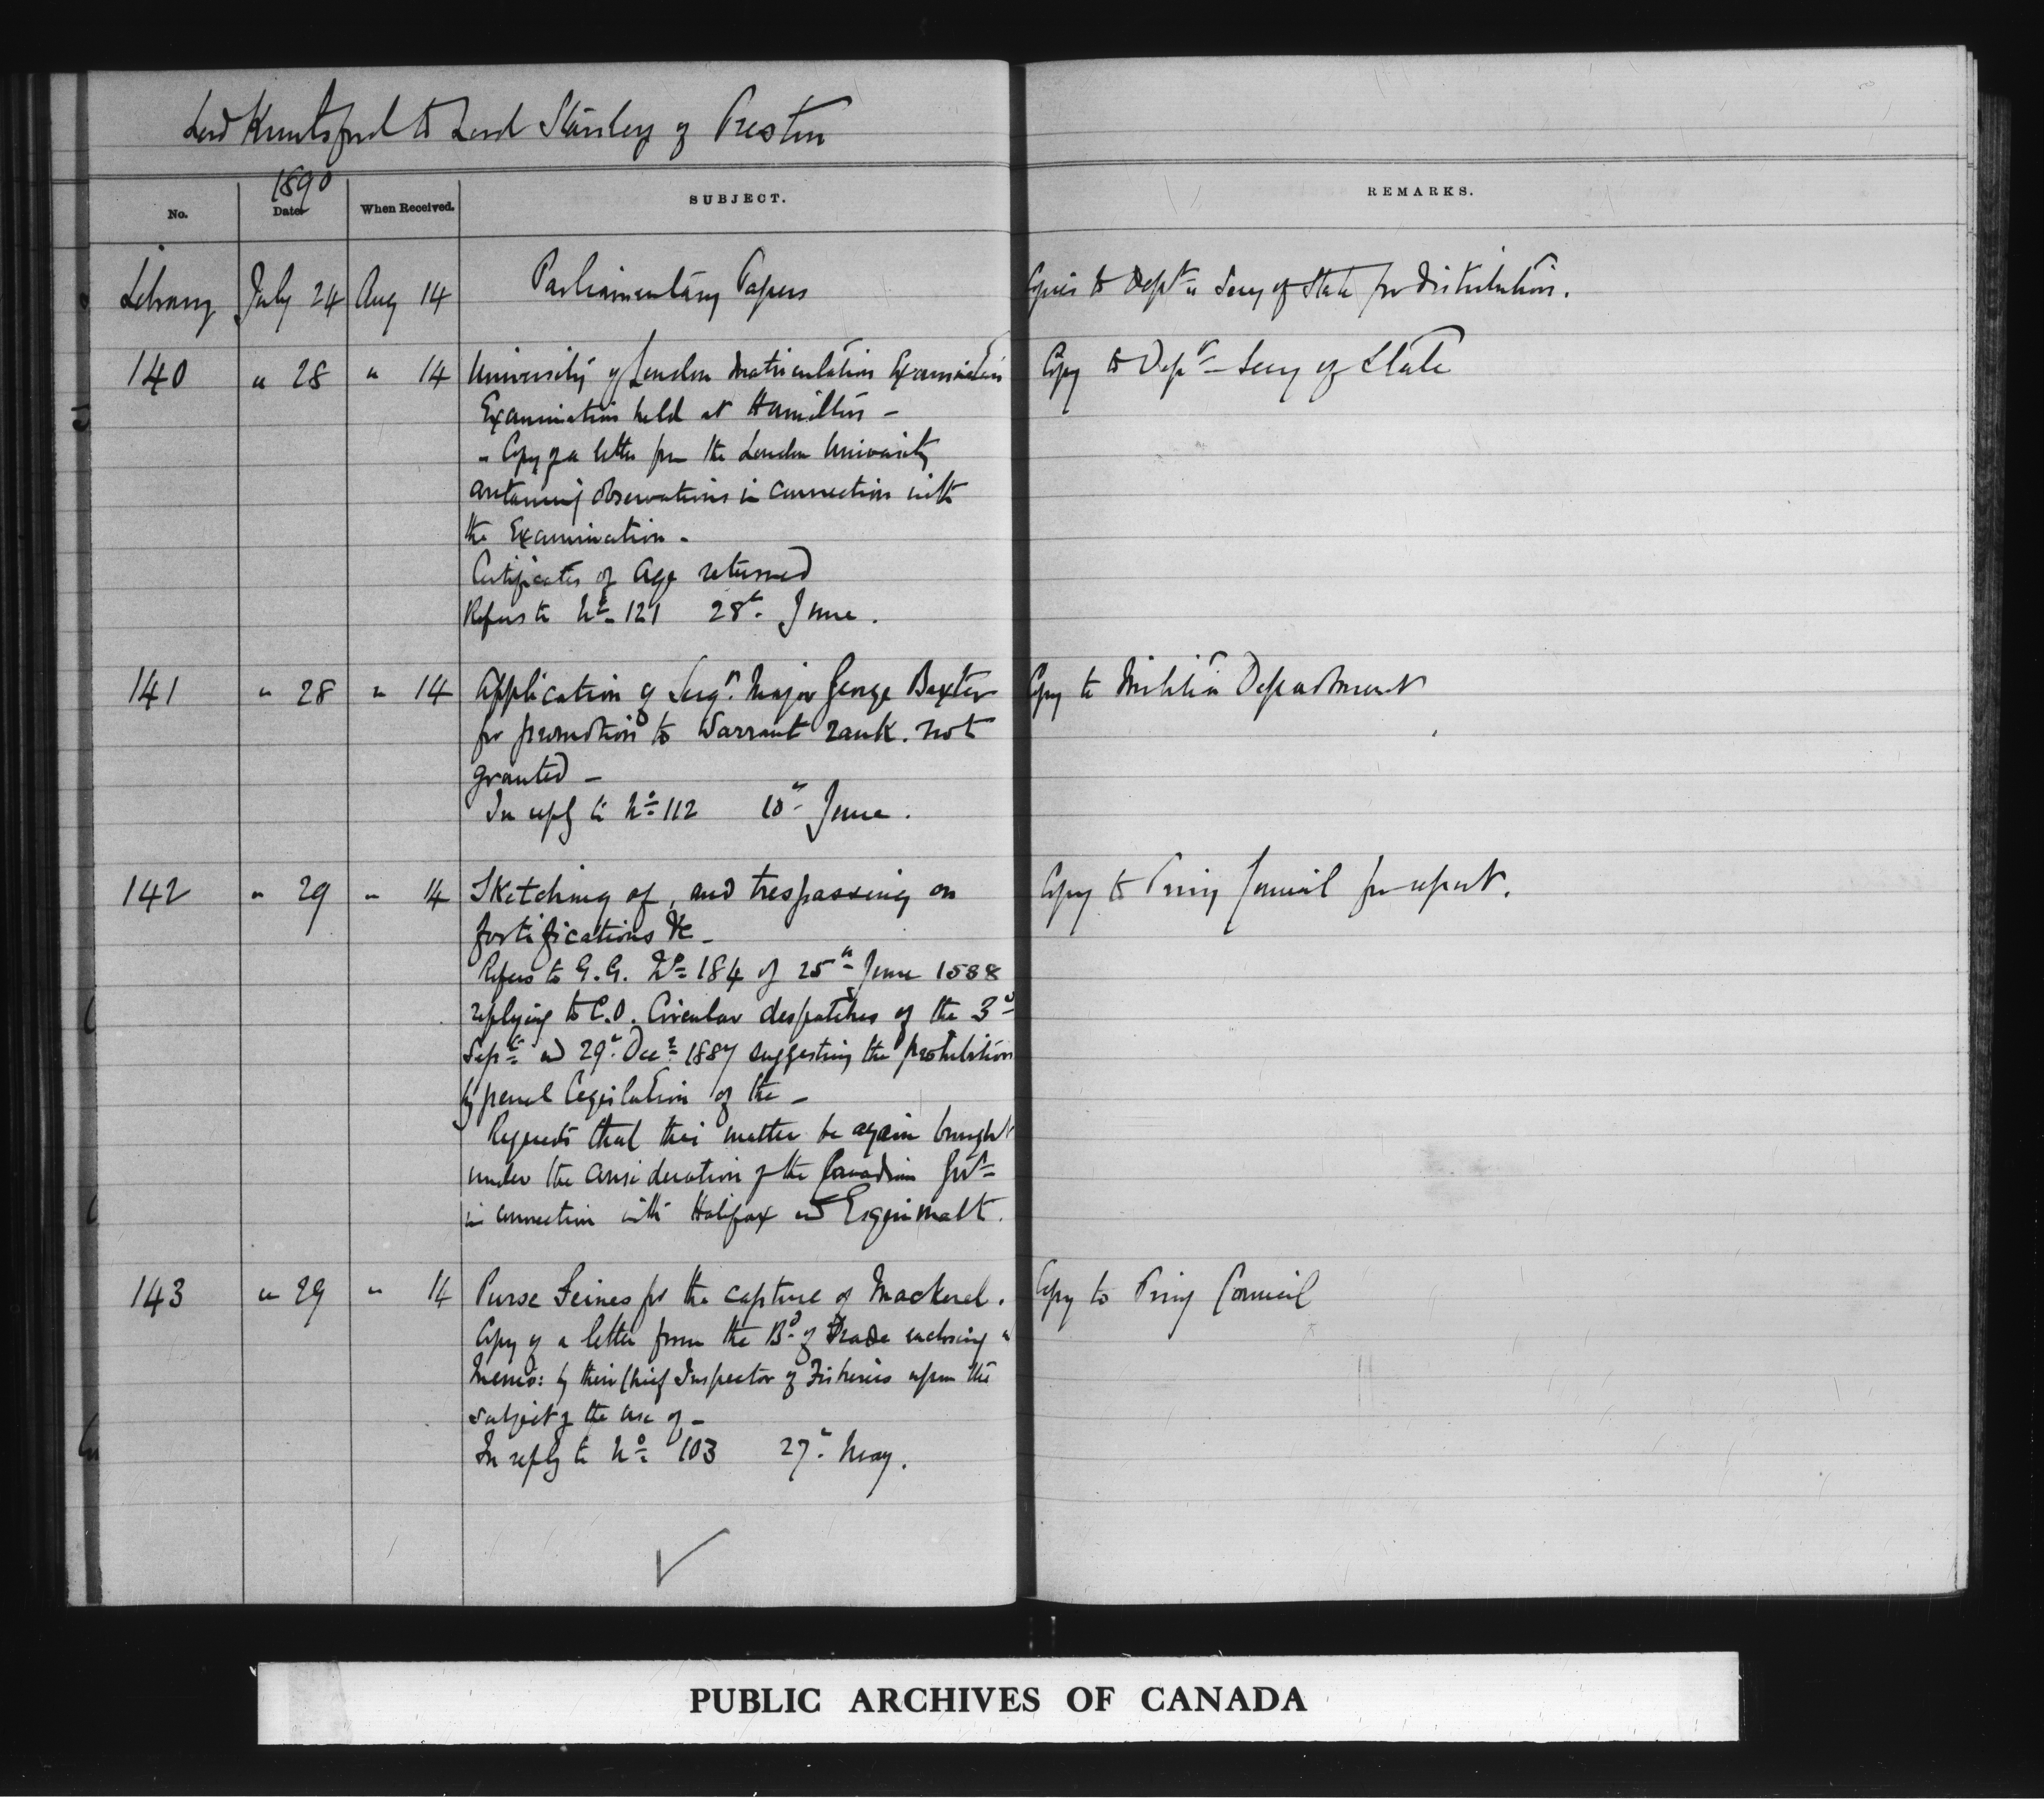 Lord Knutsford to Lord Stanley of Preston
1890
No. Date When Received. SUBJECT. REMARKS.
Library July 24 Aug 14 Parliamentary Papers Copies to Dept Secy of State for distribution.
140 " 28 " 14 University of London Matriculation Examination Copy to Dept Secy of State
Examination held at Hamilton -
- Copy of a letter from the London University
containing observations in connection with
the Examination.
Certificates of Age returned
Refers to No 121 28th June.
141 " 28 " 14 Application of Sergt. Major George Baxter Copy to Militia Department
for promotion to Warrant rank. not
granted -
In reply to No 112 10th June.
142 " 29 " 14 Sketching of, and trespassing on Copy to Privy Council for report.
fortifications &c -
Refers to G.G. No 184 of 25th June 1888
replying to C.O. Circular despatches of the 3d
Septr and 29th Decr 1887 suggesting the prohibition
by penal legislation of the -
Requests that this matter be again brought
under the consideration of the Canadian Govt
in connection with Halifax and Esquimalt.
143 " 29 " 14 Purse Seines for the capture of Mackerel. Copy to Privy Council
Copy of a letter from the Bd of Trade enclosing a
Memo: by their Chief Inspector of Fisheries upon the
subject of the use of -
In reply to No 103 27th May.
PUBLIC ARCHIVES OF CANADA